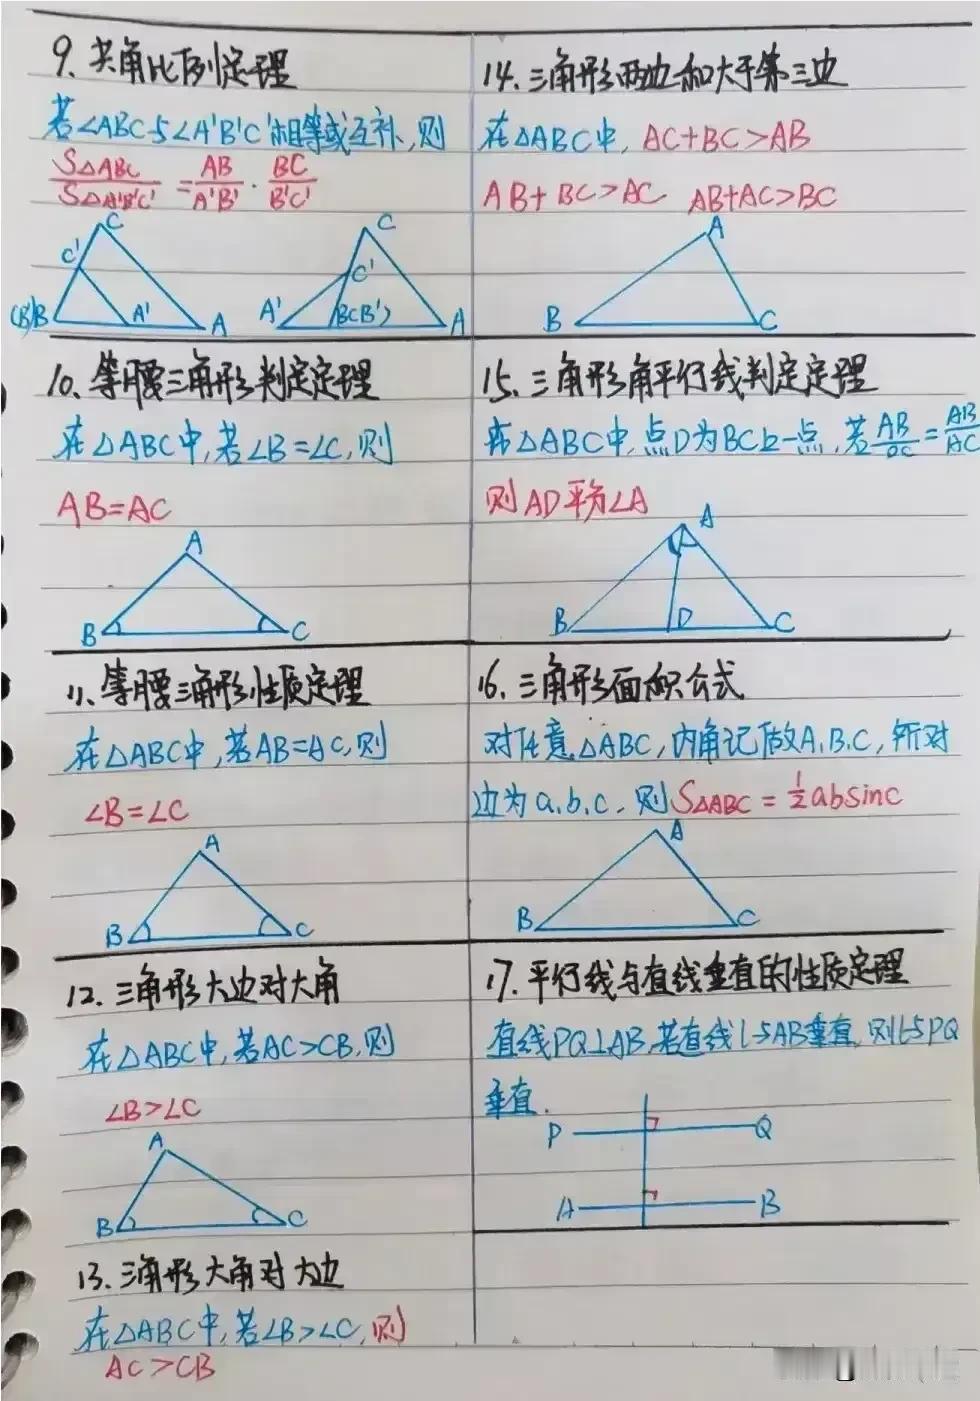 9. 共角比例定理
若∠ABC与∠A'B'C'相等或互补,则
S△ABC/S△A'B'C' = AB/A'B' · BC/B'C'
C
C'
(B')B
A'
A
C
C'
A'
B(B')
A
10. 等腰三角形判定定理
在△ABC中,若∠B=∠C,则
AB=AC
A
B
C
11. 等腰三角形性质定理
在△ABC中,若AB=AC,则
∠B=∠C
A
B
C
12. 三角形大边对大角
在△ABC中,若AC>CB,则
∠B>∠C
A
B
C
13. 三角形大角对大边
在△ABC中,若∠B>∠C,则
AC>CB
14. 三角形两边和大于第三边
在△ABC中, AC+BC>AB
AB+BC>AC AB+AC>BC
A
B
C
15. 三角形角平行线判定定理
在△ABC中,点D为BC上一点,若AB/DC=AB/AC
则AD平分∠A
A
B
D
C
16. 三角形面积公式
对任意△ABC,内角记做A.B.C,所对
边为a.b.c.则S△ABC=½absinc
A
B
C
17. 平行线与直线垂直的性质定理
直线PQ⊥AB,若直线l与AB垂直,则l与PQ
垂直.
P
Q
A
B